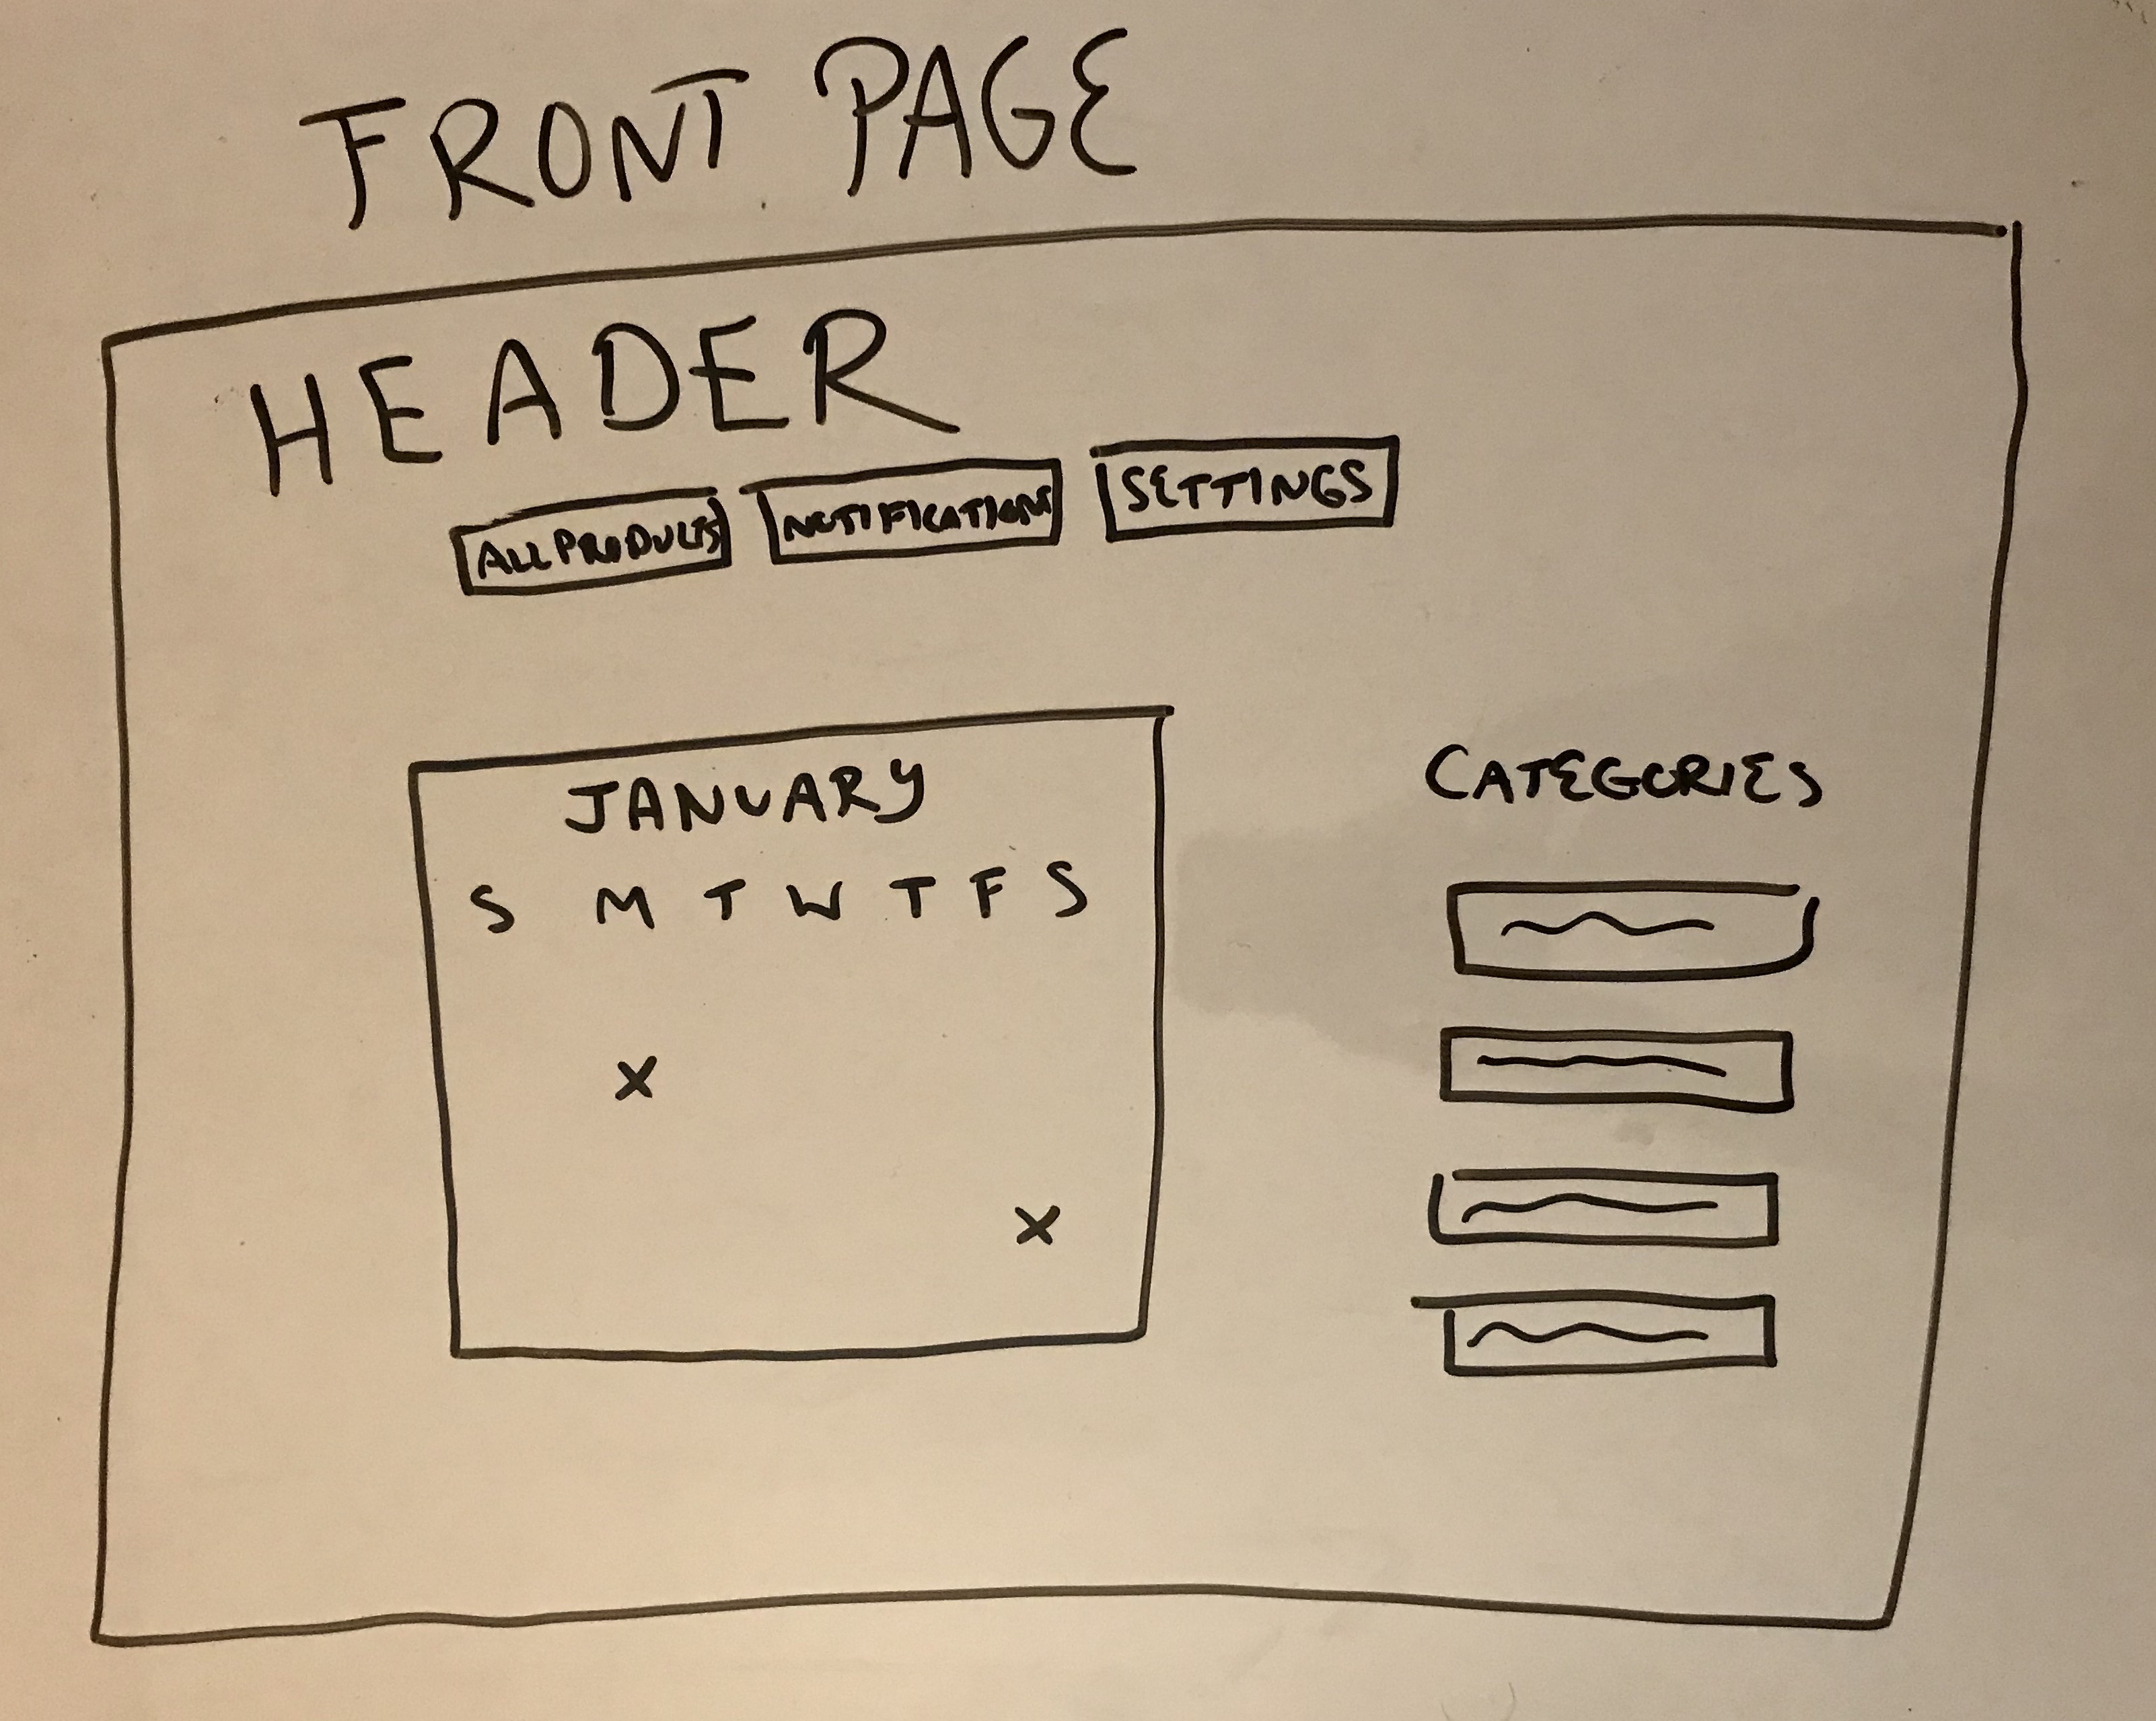 FRONT PAGE
HEADER
ALL PRODUCTS NOTIFICATIONS SETTINGS
JANUARY
S M T W T F S
X
X
CATEGORIES